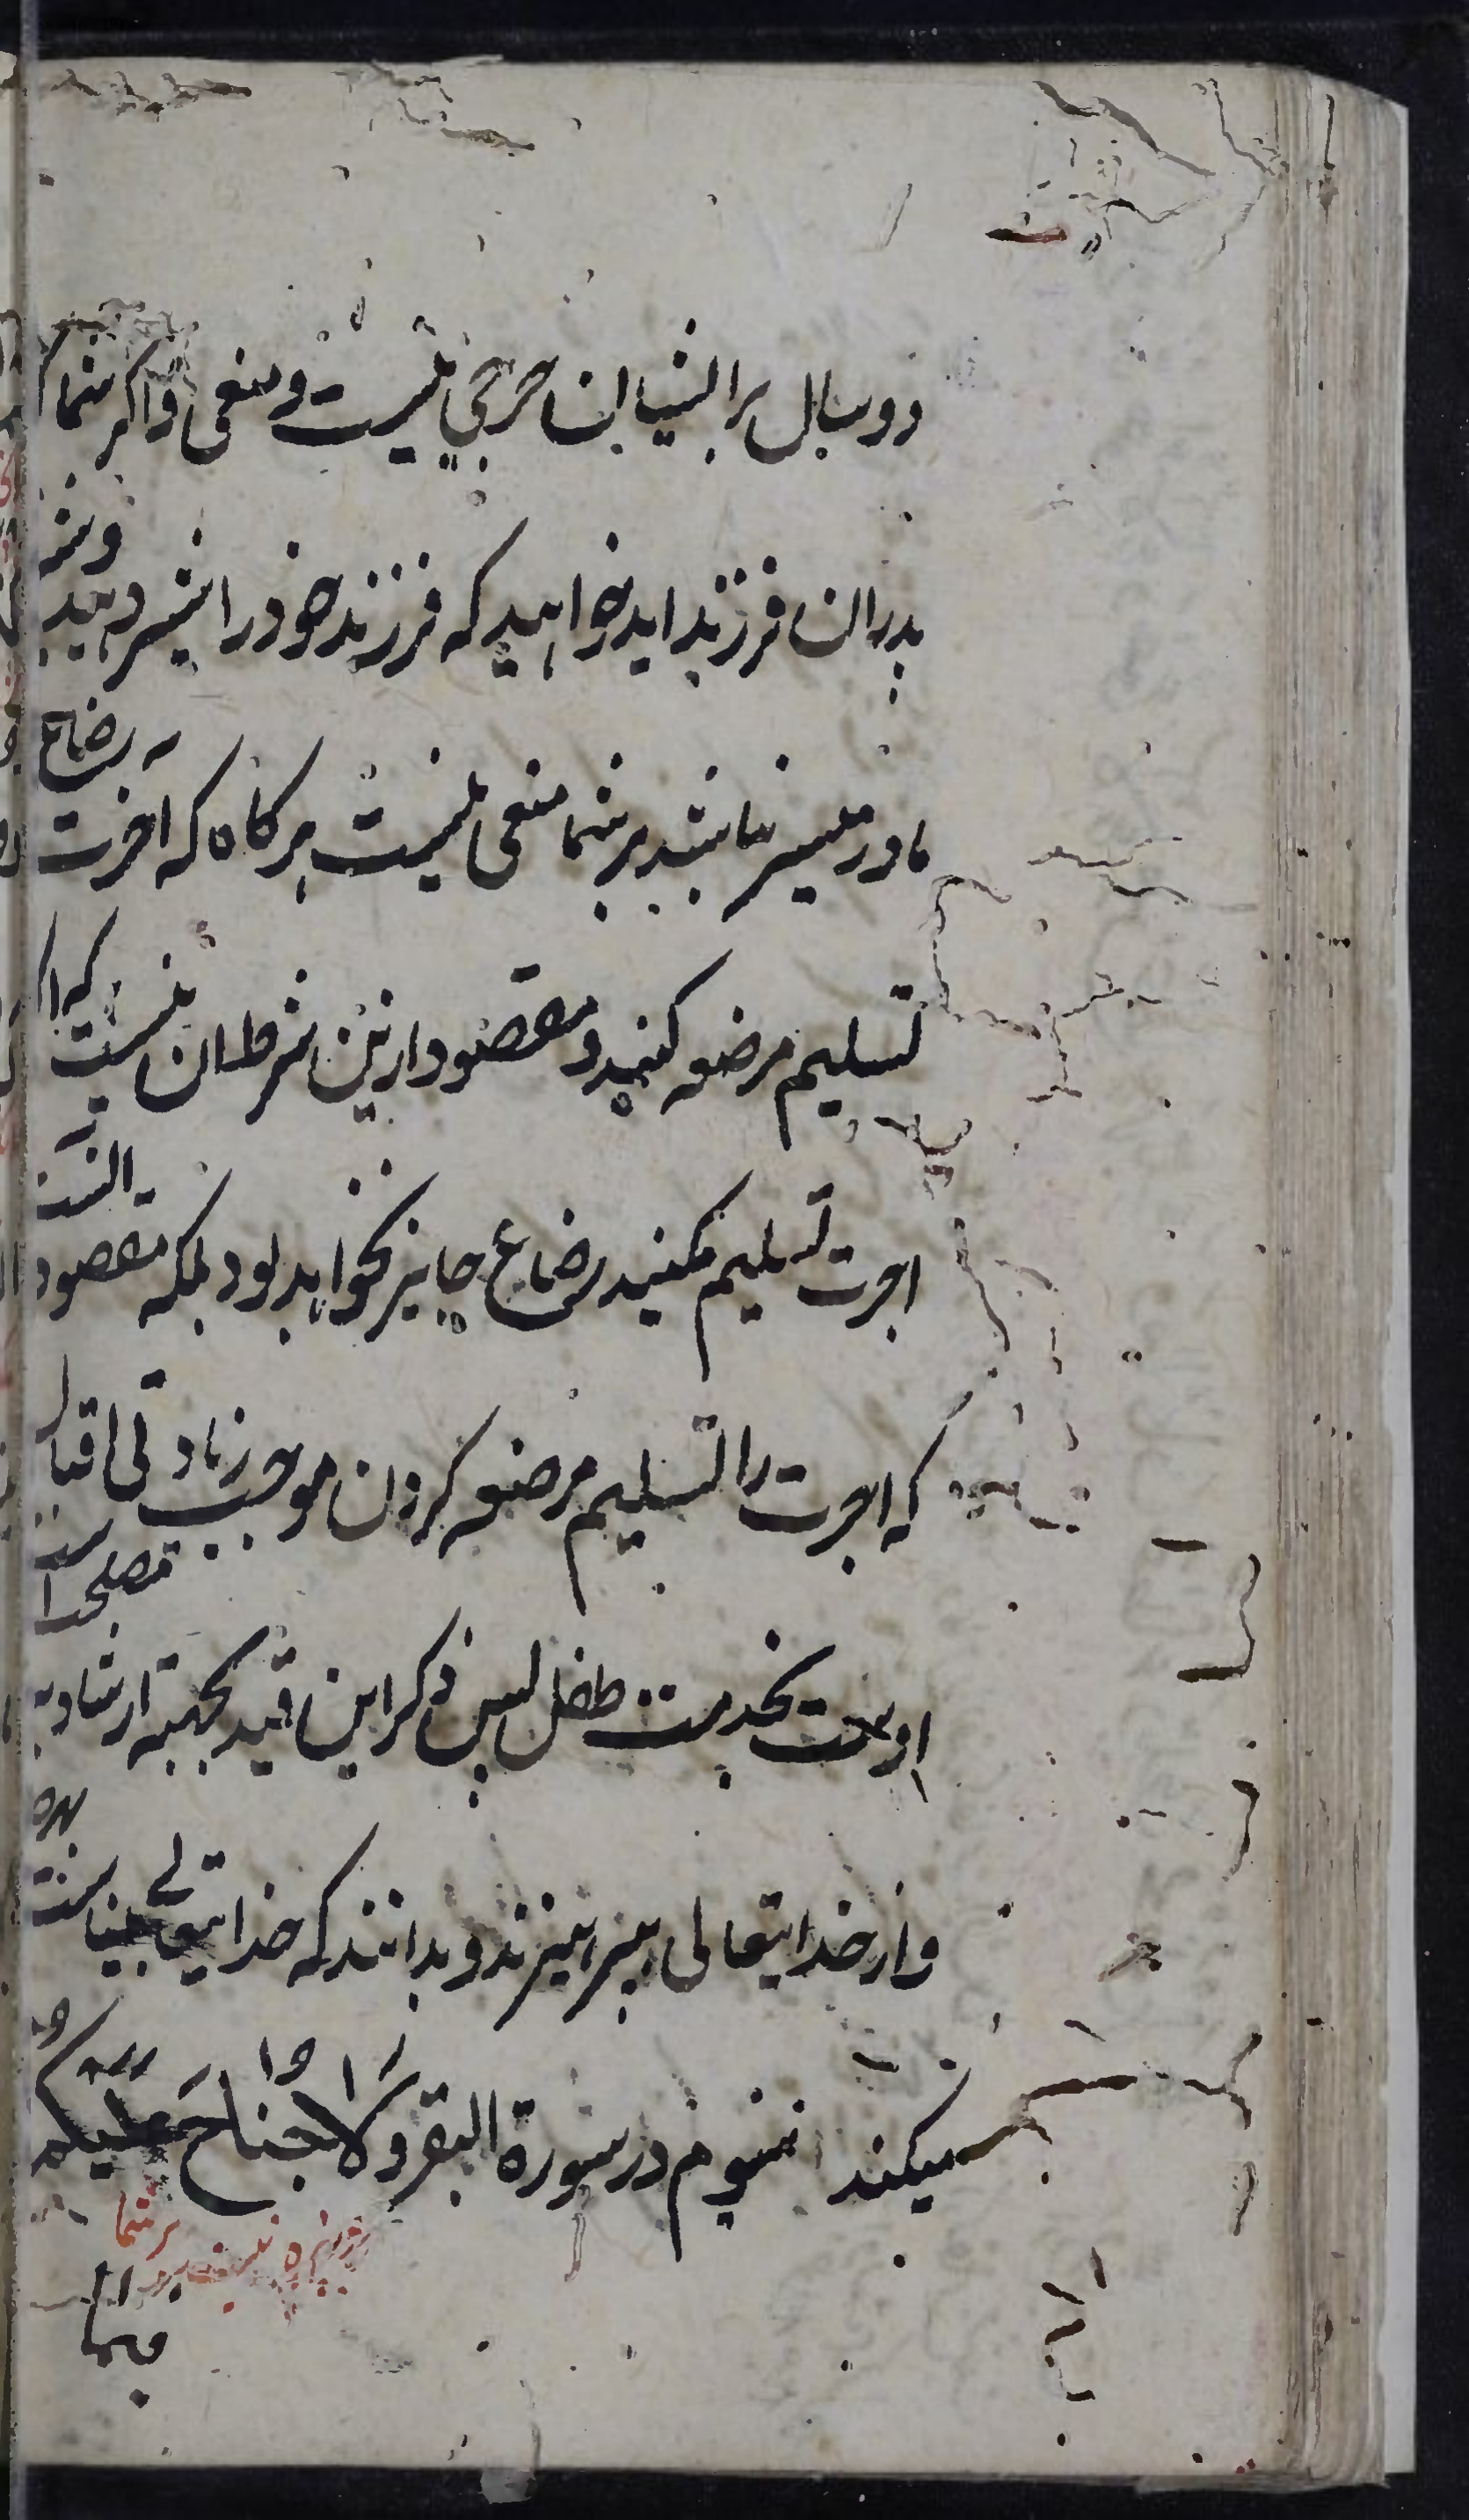 دو سال بر ایشان حرجی نیست و منعی و اکر شما که
پدران فرزند اید خواهید که فرزند خود را شیر دهید و شیر
مادر میسر نباشد بر شما منعی نیست هرکاه که اجرت رضاع
تسلیم مرضعه کنید و مقصود ازین شرط ان نیست که اکر
اجرت تسلیم نکنید رضاع جایز نخواهد بود بلکه مقصود انست
که اجرت را تسلیم مرضعه کردن موجب زیادتی اقبال
اوست بخدمت طفل پس ذکر این قید بجهة ارشاد به مصلحت است
و از خدایتعالی بپرهیزند و بدانند که خدایتعالی بیناست
میکند سیوم در سورة البقر ولا جناح علیکم
بر شما
فیما